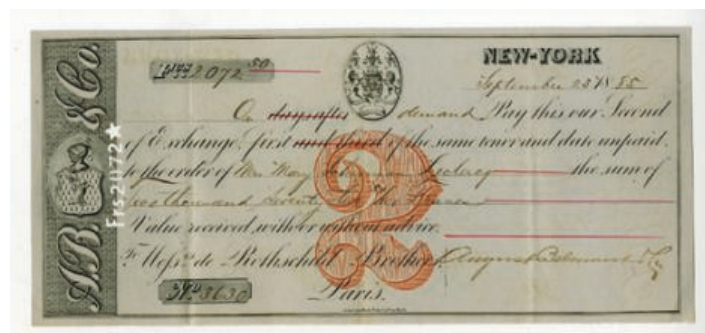 A.B. & Co.
Frs 2072 50
Frs2072★
NEW-YORK
September 25 1855
On days after demand Pay this our Second
of Exchange, first and third of the same tenor and date unpaid,
to the order of Mrs Mary the sum of
Two thousand seventy two
Value received, with or without advice.
To Messrs de Rothschild Brothers August Belmont & Co
No 3630 Paris.
2